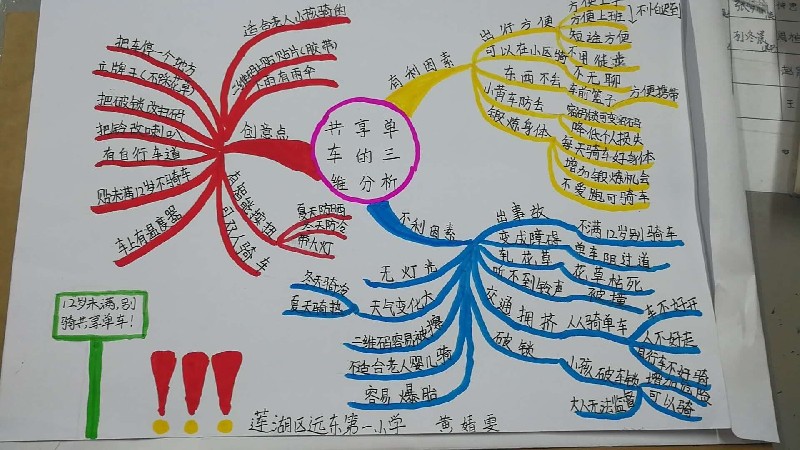 共享单
车的三
维分析
有利因素
出行方便
方便上班
不怕迟到
短途方便
可以在小区骑
不用催赶
不无聊
东西不会
车前篮子
方便携带
小黄车防丢
降低个人损失
锻炼身体
每天骑车好身体
增加锻炼机会
不爱跑可骑车
创意点
适合老人小孩骑的
二维码上贴贴片(胶带)
下雨有雨伞
把车停一个地方
立牌子(不踩花草)
把破锁改密码
把铃改喇叭
有自行车道
贴未满12岁不骑车
车上有温度器
可双人骑车
夏天防晒
冬天防冷
带大灯
不利因素
出事故
不满12岁别骑车
变成障碍
单车阻过道
轧花草
花草枯死
听不到铃声
被撞
交通拥挤
人人骑单车
车不好开
人不好走
自行车不好骑
破锁
小孩破车锁
增加危险
可以骑
大人无法监管
无灯光
天气变化大
冬天骑冷
夏天骑热
二维码容易被撕
不适合老人婴儿骑
容易爆胎
12岁未满,别
骑共享单车!
莲湖区远东第一小学 黄婧雯